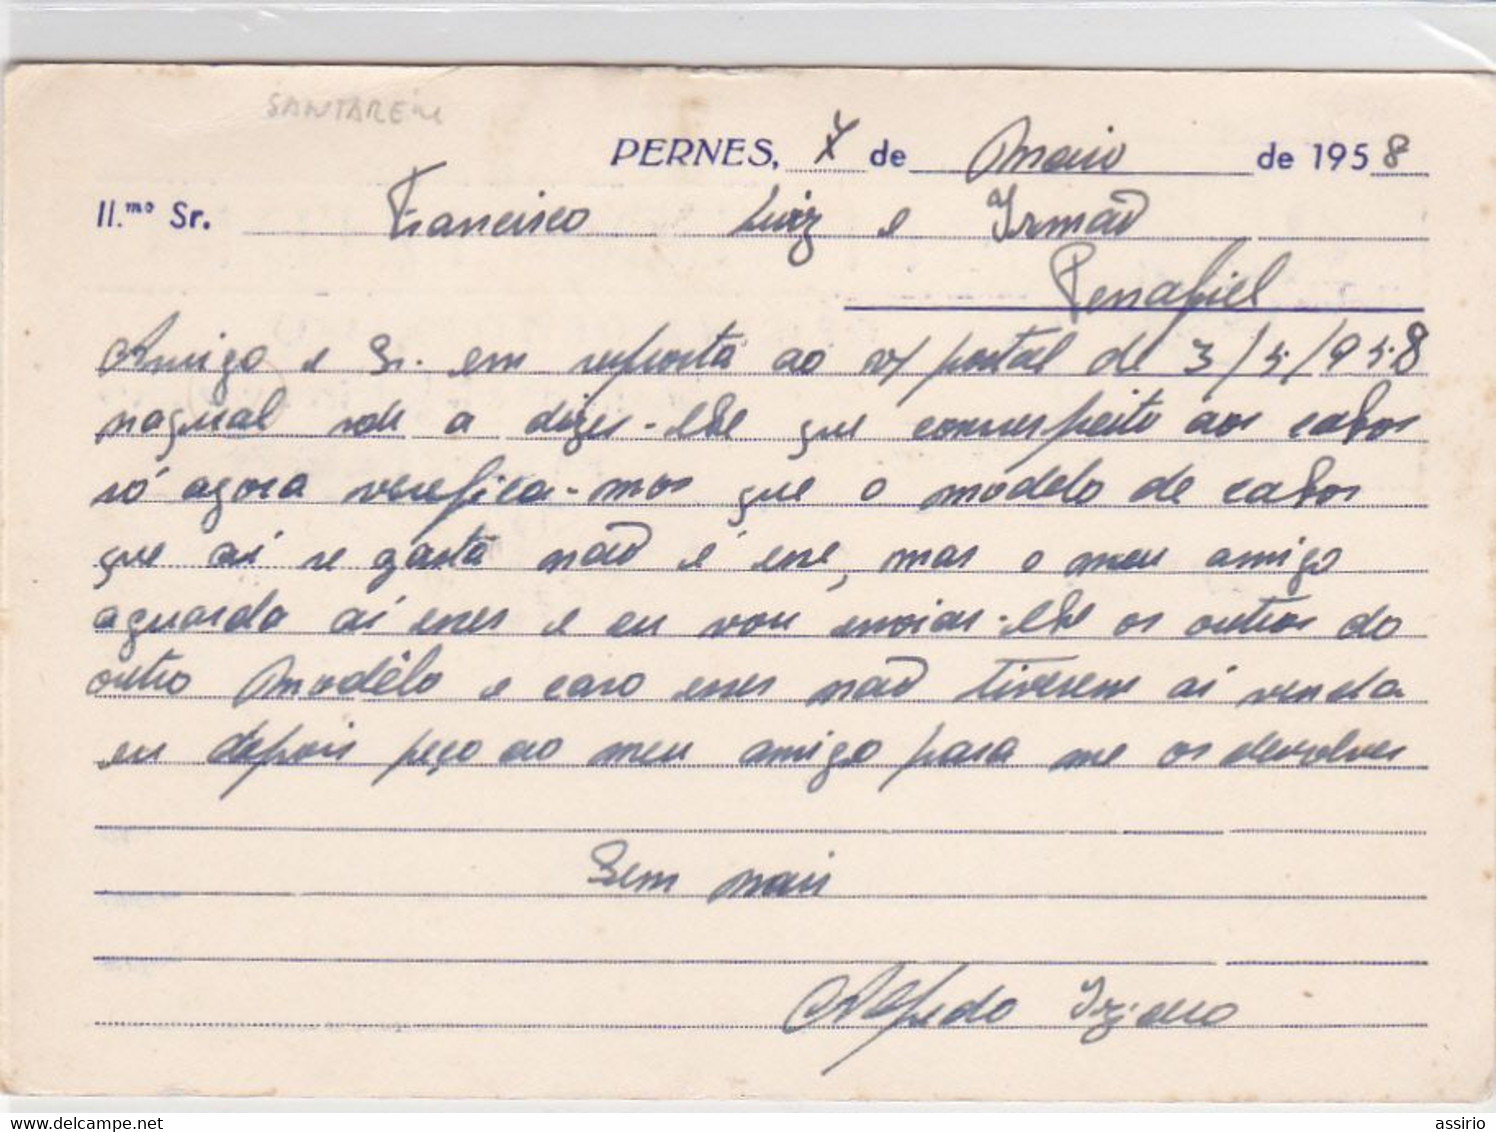 SANTAREM
PERNES, 7 de Maio de 1958
Il.mo Sr. Francisco Luiz e Irmão
Penafiel
Amigo e Sr. em resposta ao v/ postal de 3/5/958
naqual sou a dizer-lhe que comrespeito aos cabos
só agora verefica-mos que o modelo de cabos
que aí se gasta não é esse, mas o meu amigo
aguarda aí esses e eu vou enviar-lhe os outros do
outro modêlo e caso esses não tiverem aí venda
eu depois peço ao meu amigo para me os devolver
Sem mais
Alfredo
assirio